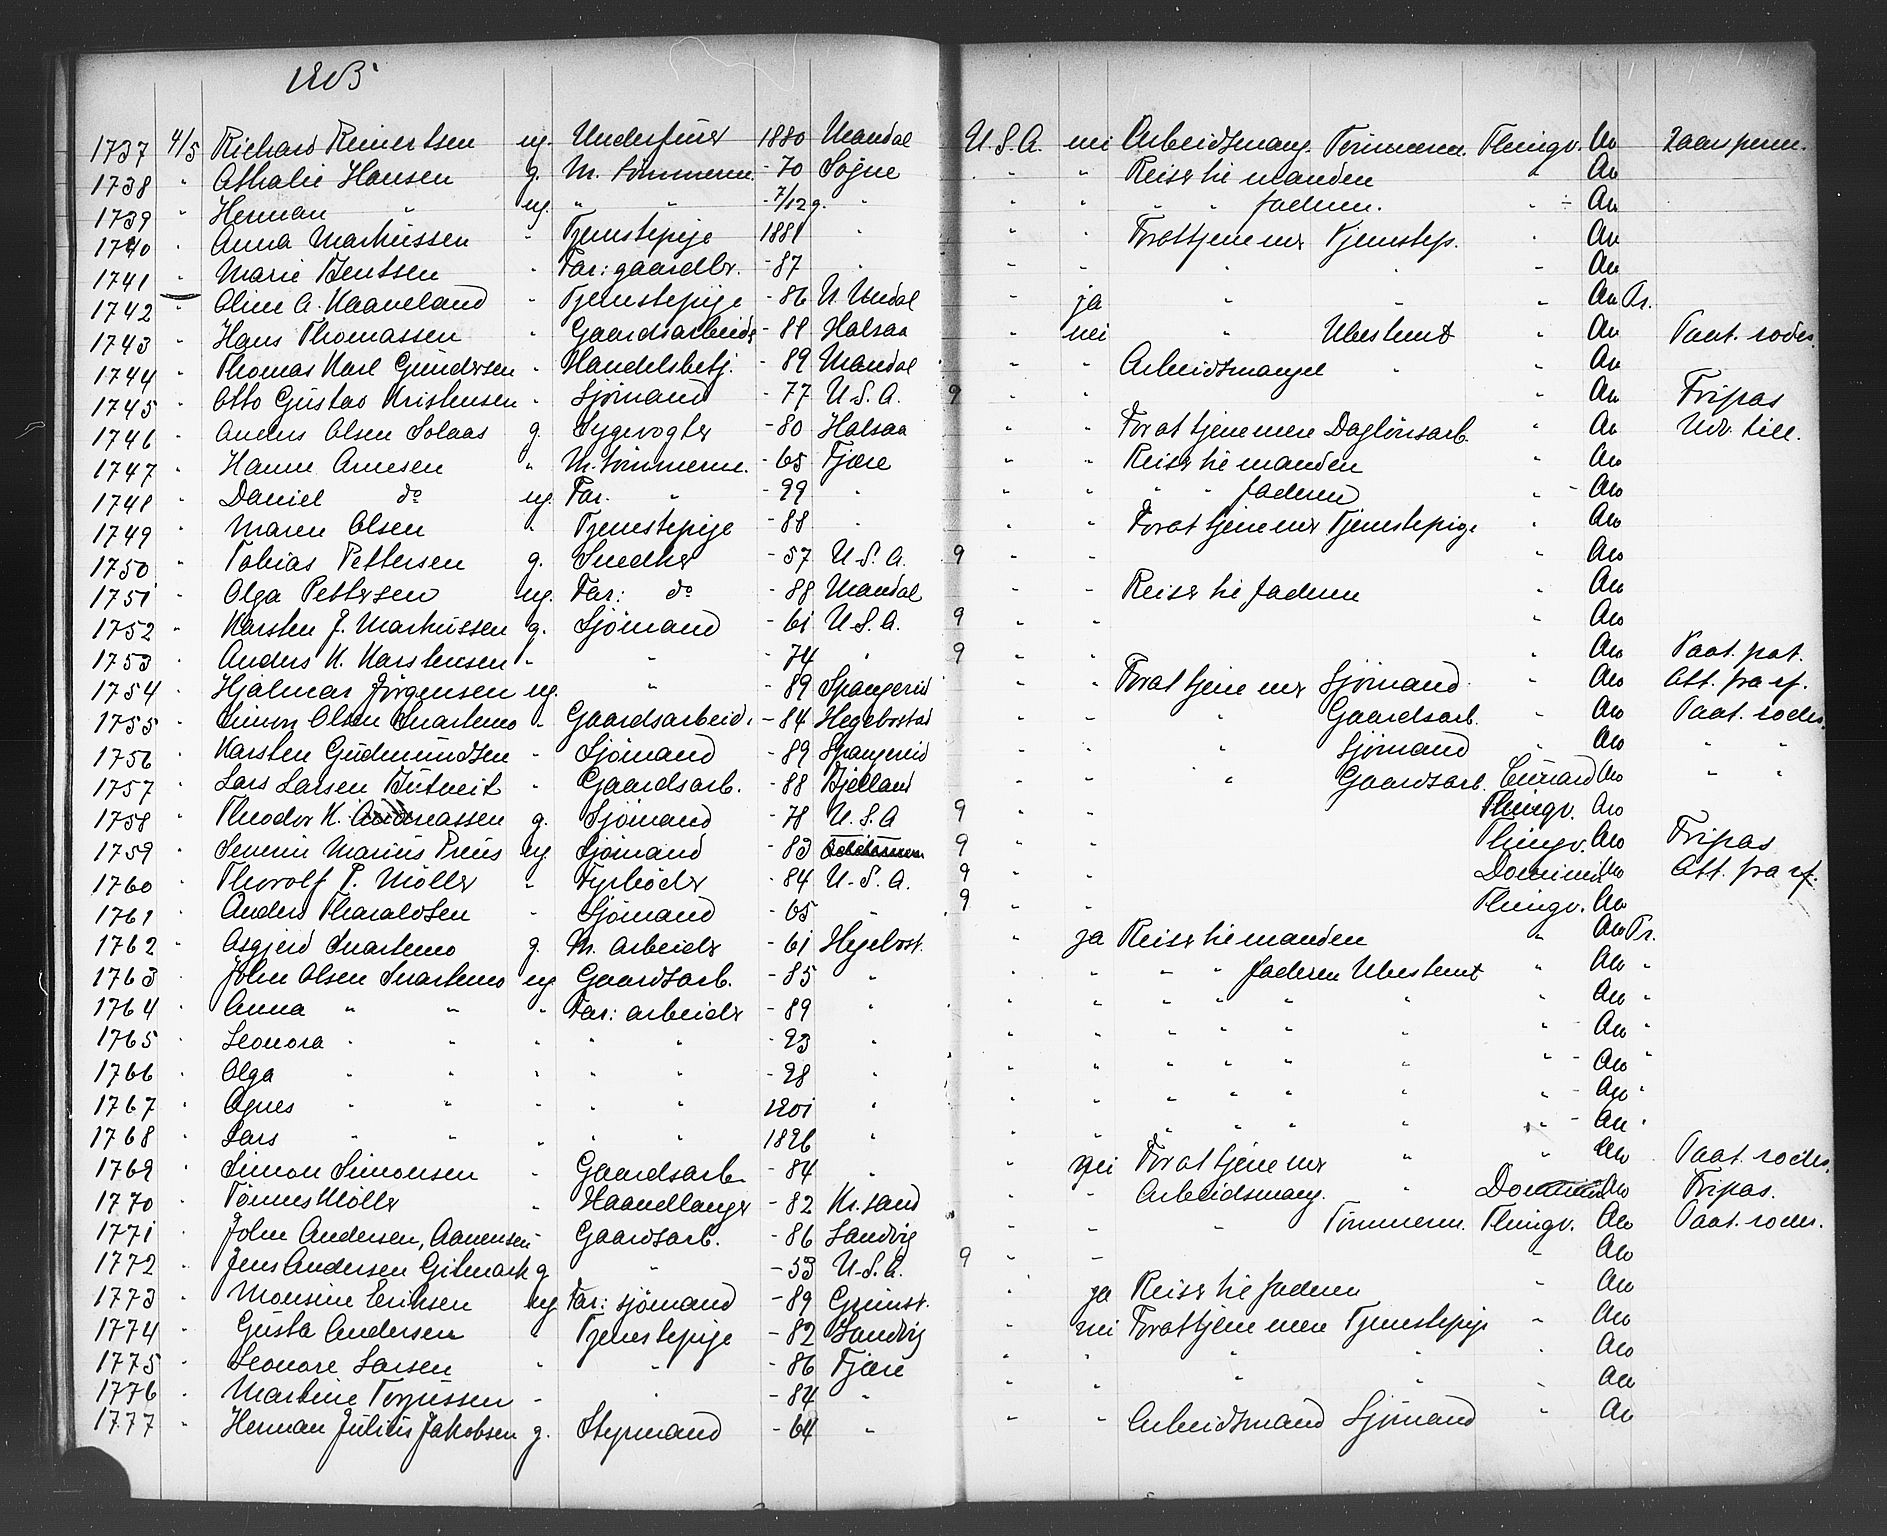 1905
1737 4/5 Richard Reinertsen ug. Underfürer 1880 Mandal U.S.A. nei Arbeidsmang. Tømmerm. Thingv. Ao 2aars perm.
1738 " Athalie Hansen g. M. tømmerm. -70 Søgne " " Reiser til manden " Ao
1739 " Herman " ug. " " -7/12 g. " " " " " faderen. " ÷ Ao
1740 " Anna Markussen " Tjenstepige 1881 " " " For at tjene mer Tjenstep. " Ao
1741 " Marie Bentsen " Far: gaardbr. -87 " " " " " " Ao
1742 " Oline A. Kaaveland " Tjenstepige -86 N. Undal " ja " " " Ao Pr.
1743 " Hans Thomassen " Gaardsarbeider -88 Halsaa " nei " Ubestemt " Ao Paat. rodes.
1744 " Thomas Karl Gundersen " Handelsbetj. -89 Mandal " " Arbeidsmangel " " Ao
1745 " Otto Gustav Kristensen " Sjømand -77 U.S.A. 9 " " " Ao Fripas
1746 " Anders Olsen Solaas g. Sygevogter -80 Halsaa " " For at tjene mere Daglønsarb. " Ao Udv. till.
1747 " Hanne Arnesen " M. tømmerm. -65 Fjære " " Reiser til manden " Ao
1748 " Daniel do ug. Far. " -99 " " " " " faderen " - Ao
1749 " Maren Olsen " Tjenstepige -88 " " " For at tjene mer Tjenstepige " Ao
1750 " Tobias Pettersen g. Smedker -57 U.S.A. 9 " " " Ao
1751 " Olga Pettersen ug. Far: do -88 Mandal " " Reiser til faderen " Ao
1752 " Karsten J. Markussen g. Sjømand -61 U.S.A. 9 " " " Ao
1753 " Anders K. Karstensen " " -74 " 9 " " " Ao Paat. pat.
1754 " Hjalmar Jørgensen ug. " -89 Spangerid " " For at tjene mer Sjømand " Ao Att. fra rf.
1755 " Simon Olsen Snartemo " Gaardsarbeid. -84 Hegebostad " " " Gaardsarb. " Ao Paat. rodes.
1756 " Karsten Gudmundsen " Sjømand -89 Spangerid " " " Sjømand " Ao " "
1757 " Lars Larsen Butveit " Gaardsarb. -88 Bjelland " " " Gaardsarb. Cunard Ao " "
1758 " Theodor K. Andreassen g. Sjømand -78 U.S.A 9 " " Thingv. Ao
1759 " Severin Marius Preus ug. Sjømand -83 9 " " Thingv. Ao Fripas
1760 " Thorolf T. Møller " Fyrbøder -84 U.S.A. 9 " " Ao Att. fra rf.
1761 " Anders Tharaldsen " Sjømand -65 " 9 " " Thingv. Ao
1762 " Asgjerd Snartemo g. M. arbeider -61 Hegebost. " ja Reiser til manden " Ao Pr.
1763 " John Olsen Snartemo ug Gaardsarb. -85 " " " " " faderen Ubestemt " Ao "
1764 " Anna " " " Far: arbeider -89 " " " " " " " " Ao "
1765 " Leonora " " " " " -93 " " " " " " " " - Ao "
1766 " Olga " " " " " -98 " " " " " " " " - Ao "
1767 " Agnes " " " " " 1901 " " " " " " " " - Ao "
1768 " Lars " " " " " 1896 " " " " " " " " - Ao "
1769 " Simon Simonsen " Gaardsarb. -84 " " nei For at tjene mer " " Ao Paat. rodes.
1770 " Tønnes Møller " Haandlanger -82 Kr.sand " " Arbeidsmang. " Ao Fripas.
1771 " John Andersen, Aanensen " Gaardsarb. -86 Landvig " " " Tømmerm. Thingv. Ao Paat. rodes.
1772 " Jens Andersen Gitmark g " -53 U.S.A. 9 " " " Ao
1773 " Monsine Eriksen ug Far: sjømand -89 Grimst. " ja Reiser til faderen " Ao
1774 " Gusta Andersen " Tjenstepige -82 Landvig " nei For at tjene mere Tjenstepige " Ao
1775 " Leonore Larsen " " -86 Fjære " " " " " Ao
1776 " Martine Torjussen " " -84 " " " " " " Ao
1777 " Herman Julius Jakobsen g. Styrmand -64 " " " Arbeidsmand Sjømand " Ao